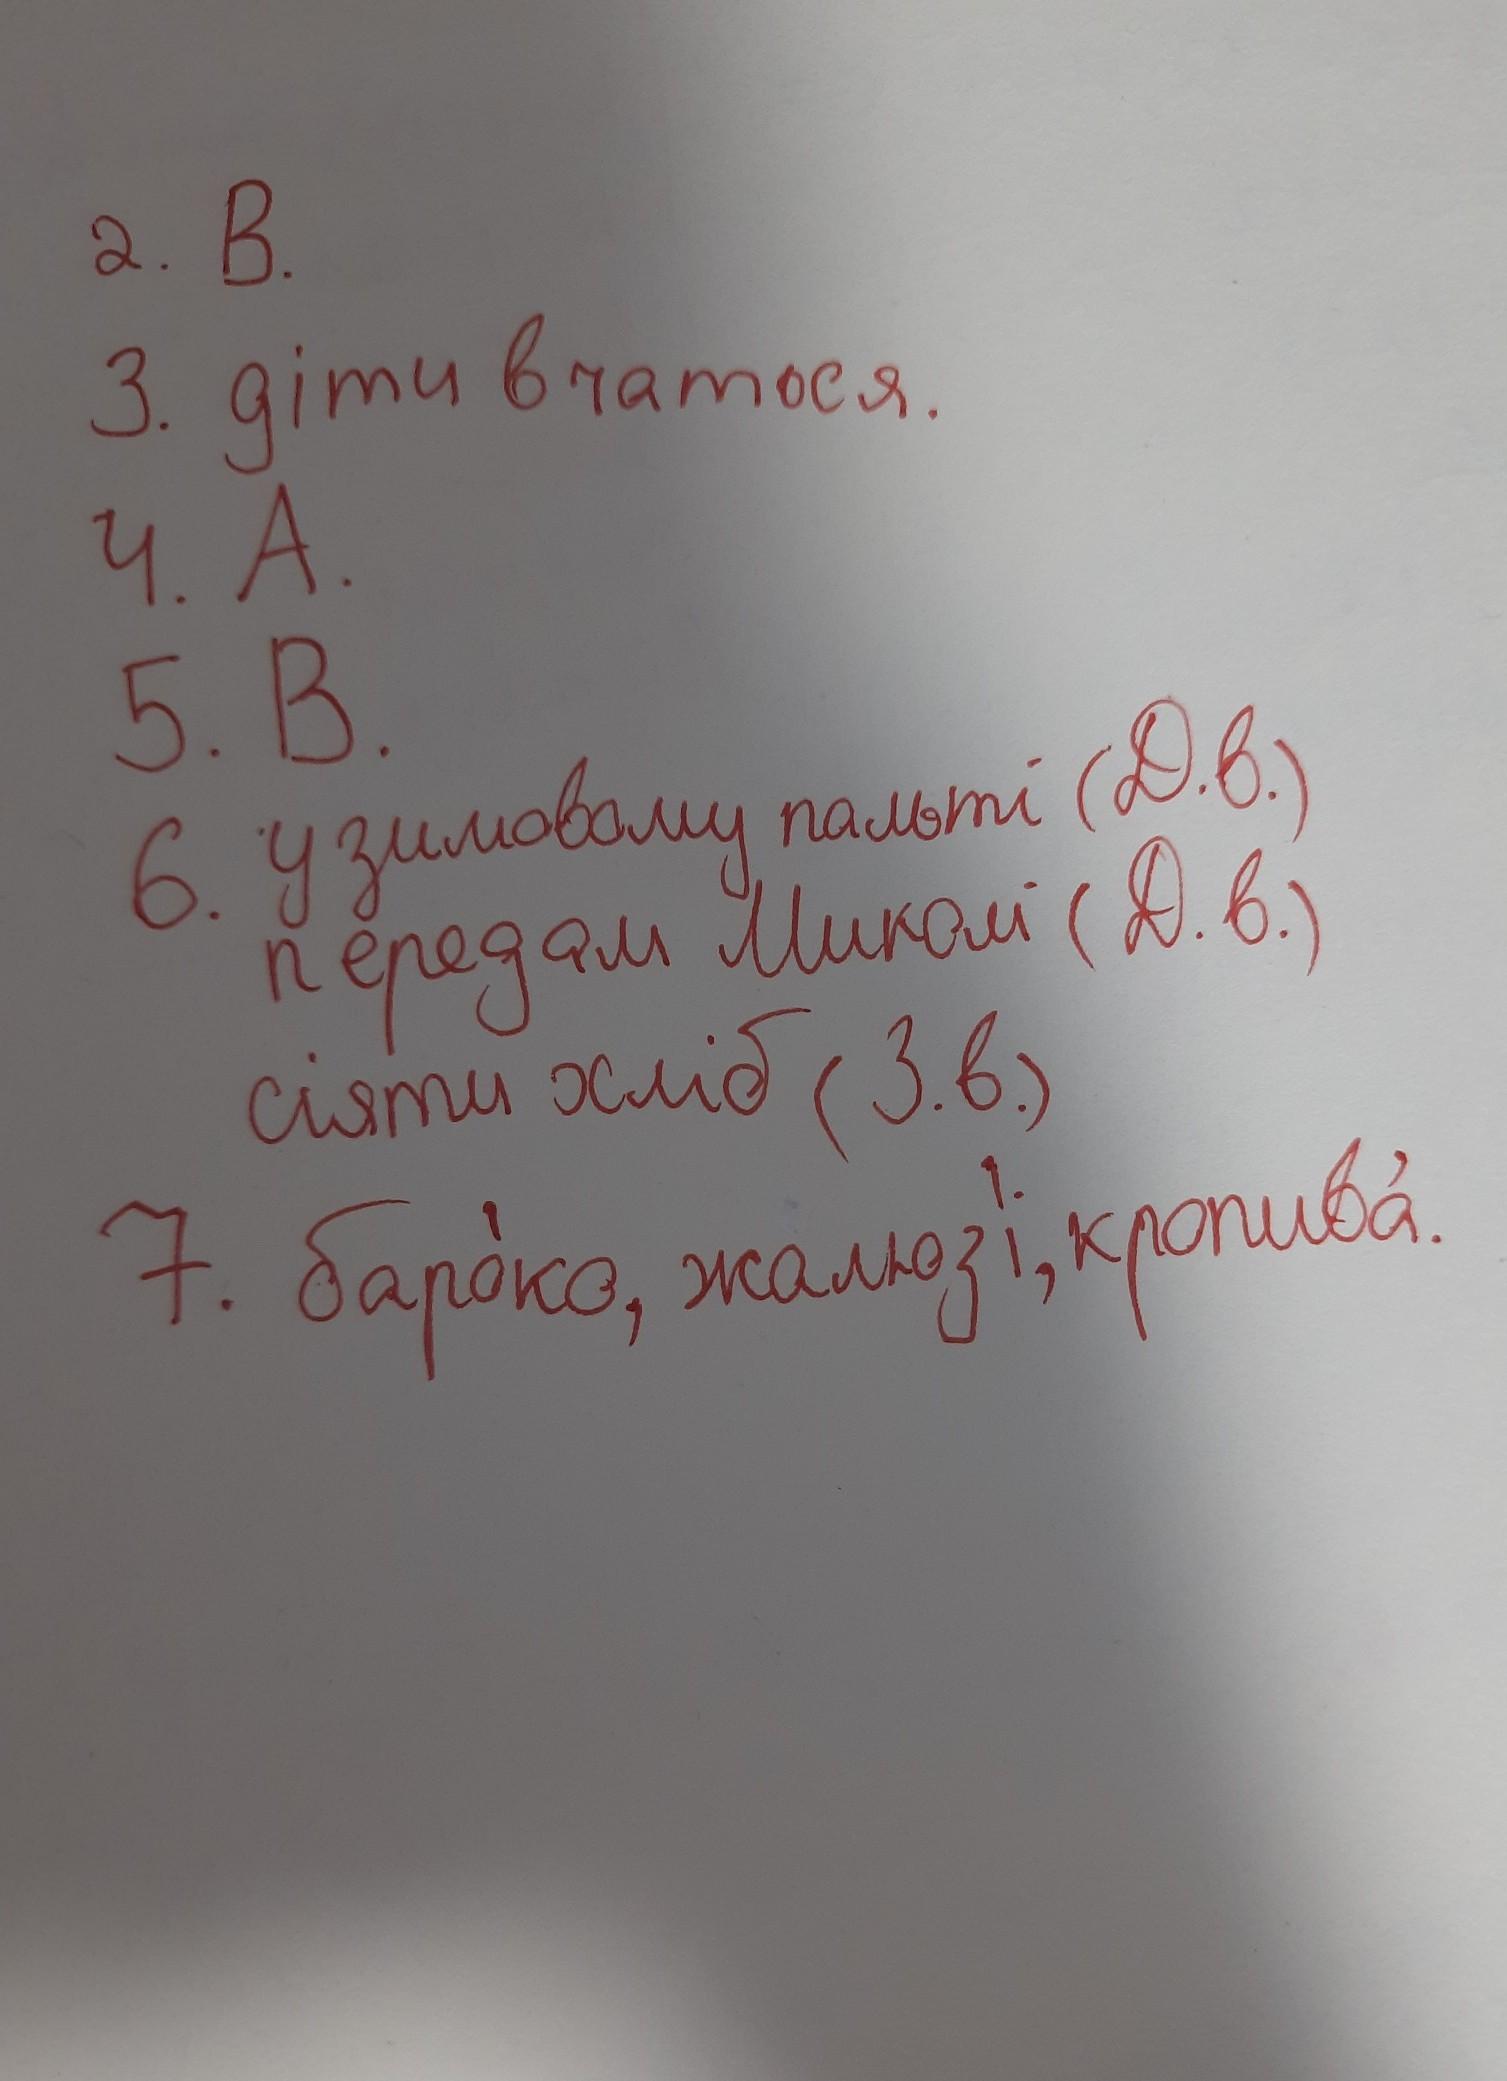 2. В.
3. діти вчаться.
4. А.
5. В.
6. у зимовому пальті (Д.в.)
передам Миколі (Д.в.)
сіяти хліб (З.в.)
7. баро́ко, жалюзі́, кропива́.